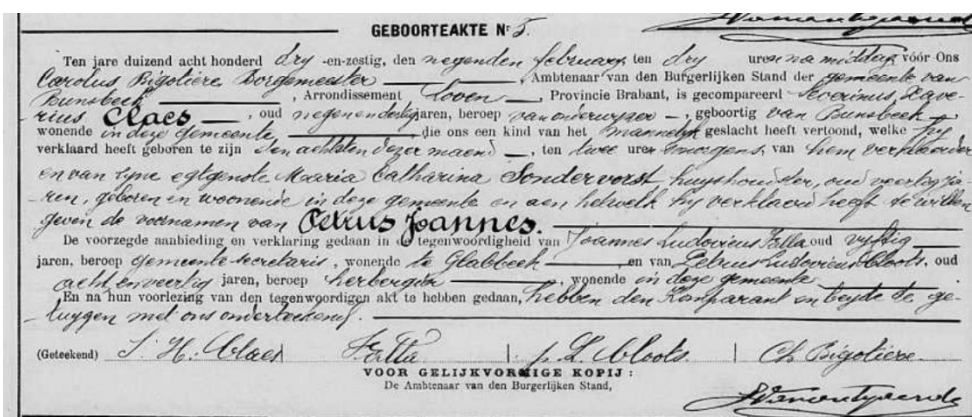 GEBOORTEAKTE Nr 5.
Ten jare duizend acht honderd dry -en-zestig, den negenden february, ten dry uren na middag vóór Ons
Carolus Bigotiere Borgemeester, Ambtenaar van den Burgerlijken Stand der gemeente van
Bunsbeek, Arrondissement Loven, Provincie Brabant, is gecompareerd Severinus Xave-
rius Claes, oud negenendertig jaren, beroep van onderwyzer, geboortig van Bunsbeek
wonende in deze gemeente die ons een kind van het mannelyk geslacht heeft vertoond, welke hy
verklaard heeft geboren te zijn den achtsten dezer maend, ten twee uren smorgens, van hem verklaarder
en van zyne egtgenote Maria Catharina Sondervorst huyshoudster, oud veertig ja-
ren, geboren en woonende in deze gemeente en aen hetwelk hy verklaard heeft te willen
geven de voornamen van Petrus Joannes.
De voorzegde aanbieding en verklaring gedaan in de tegenwoordigheid van Joannes Ludovicus Falla oud vyftig
jaren, beroep gemeente secretaris, wonende te Glabbeek en van Petrus Ludovicus Cloots, oud
acht en veertig jaren, beroep herbergier, wonende in deze gemeente
En na hun voorlezing van den tegenwoordigen akt te hebben gedaan, hebben den Komparant en beyde de ge-
tuygen met ons onderteekend.
(Geteekend) S. H. Claes | Falla | p. L. Cloots. | Ch. Bigotiere.
VOOR GELIJKVORMIGE KOPIJ :
De Ambtenaar van den Burgerlijken Stand,